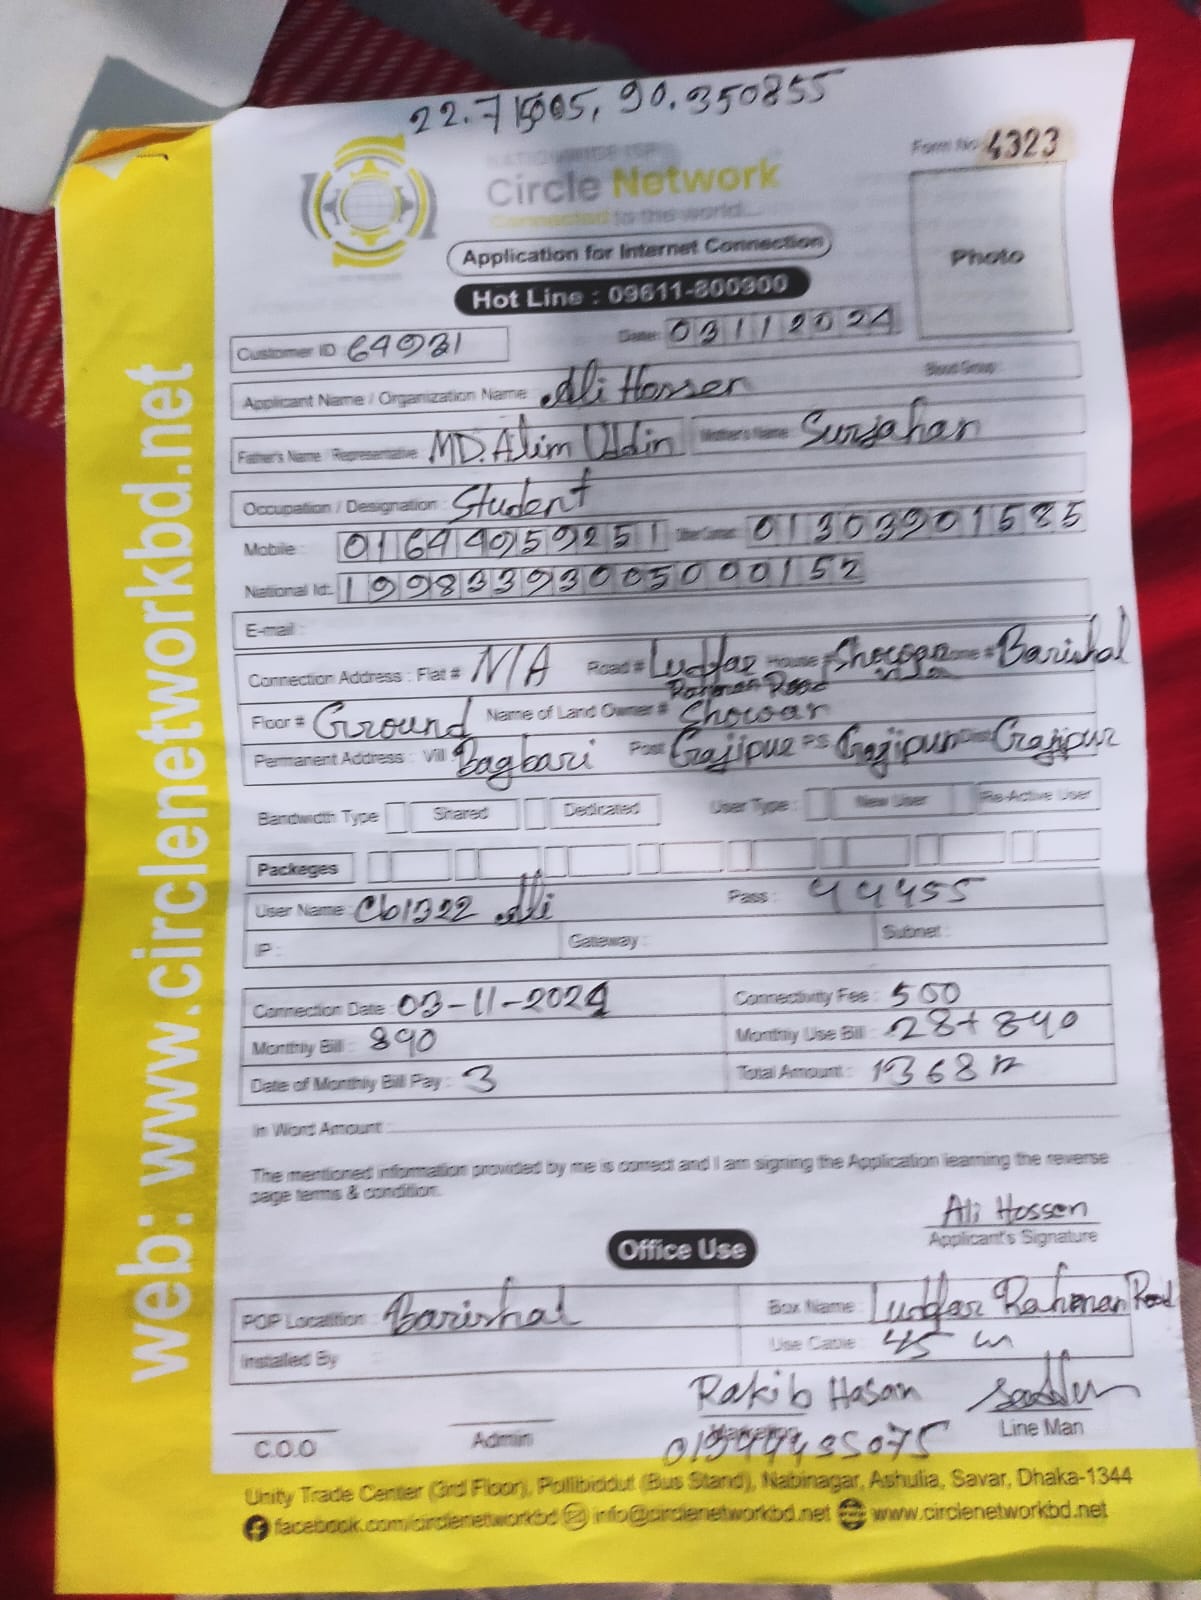 22.71505, 90.350855
NATIONWIDE ISP
Circle Network
Connected to the world...
Form No 4323
Photo
Application for Internet Connection
Hot Line : 09611-800900
Customer ID 64931 Date: 03112024
Applicant Name / Organization Name : Ali Hossen Blood Group :
Father's Name / Representative MD. Alim Uddin Mother's Name : Surjahan
Occupation / Designation : Student
Mobile : 01644959251 Other Contact : 01303901585
National Id: 19983393005000152
E-mail :
Connection Address : Flat # N/A Road # Lutfar Rahman Road House # Showar Villa Zone # Barishal
Floor # Ground Name of Land Owner # Showar
Permanent Address : Vill Bagbari Post Gajipur P.S Gajipur Dist Gajipur
Bandwidth Type Shared Dedicated User Type : New User Re-Active User
Packeges
User Name : Cb1322 Ali Pass : 44455
IP : Gateway : Subnet :
Connection Date : 03-11-2024 Connectivity Fee : 500
Monthly Bill : 890 Monthly Use Bill : 28+840
Date of Monthly Bill Pay : 3 Total Amount : 1368
In Word Amount :
The mentioned information provided by me is correct and I am signing the Application learning the reverse
page terms & condition.
Ali Hossen
Applicant's Signature
Office Use
POP Localition : Barishal Box Name : Lutfar Rahman Road
Installed By Use Cable : 45 m
Rakib Hasan
C.O.O Admin Marketing Line Man
01344435075
Unity Trade Center (3rd Floor), Pollibiddut (Bus Stand), Nabinagar, Ashulia, Savar, Dhaka-1344
facebook.com/circlenetworkbd info@circlenetworkbd.net www.circlenetworkbd.net
web: www.circlenetworkbd.net